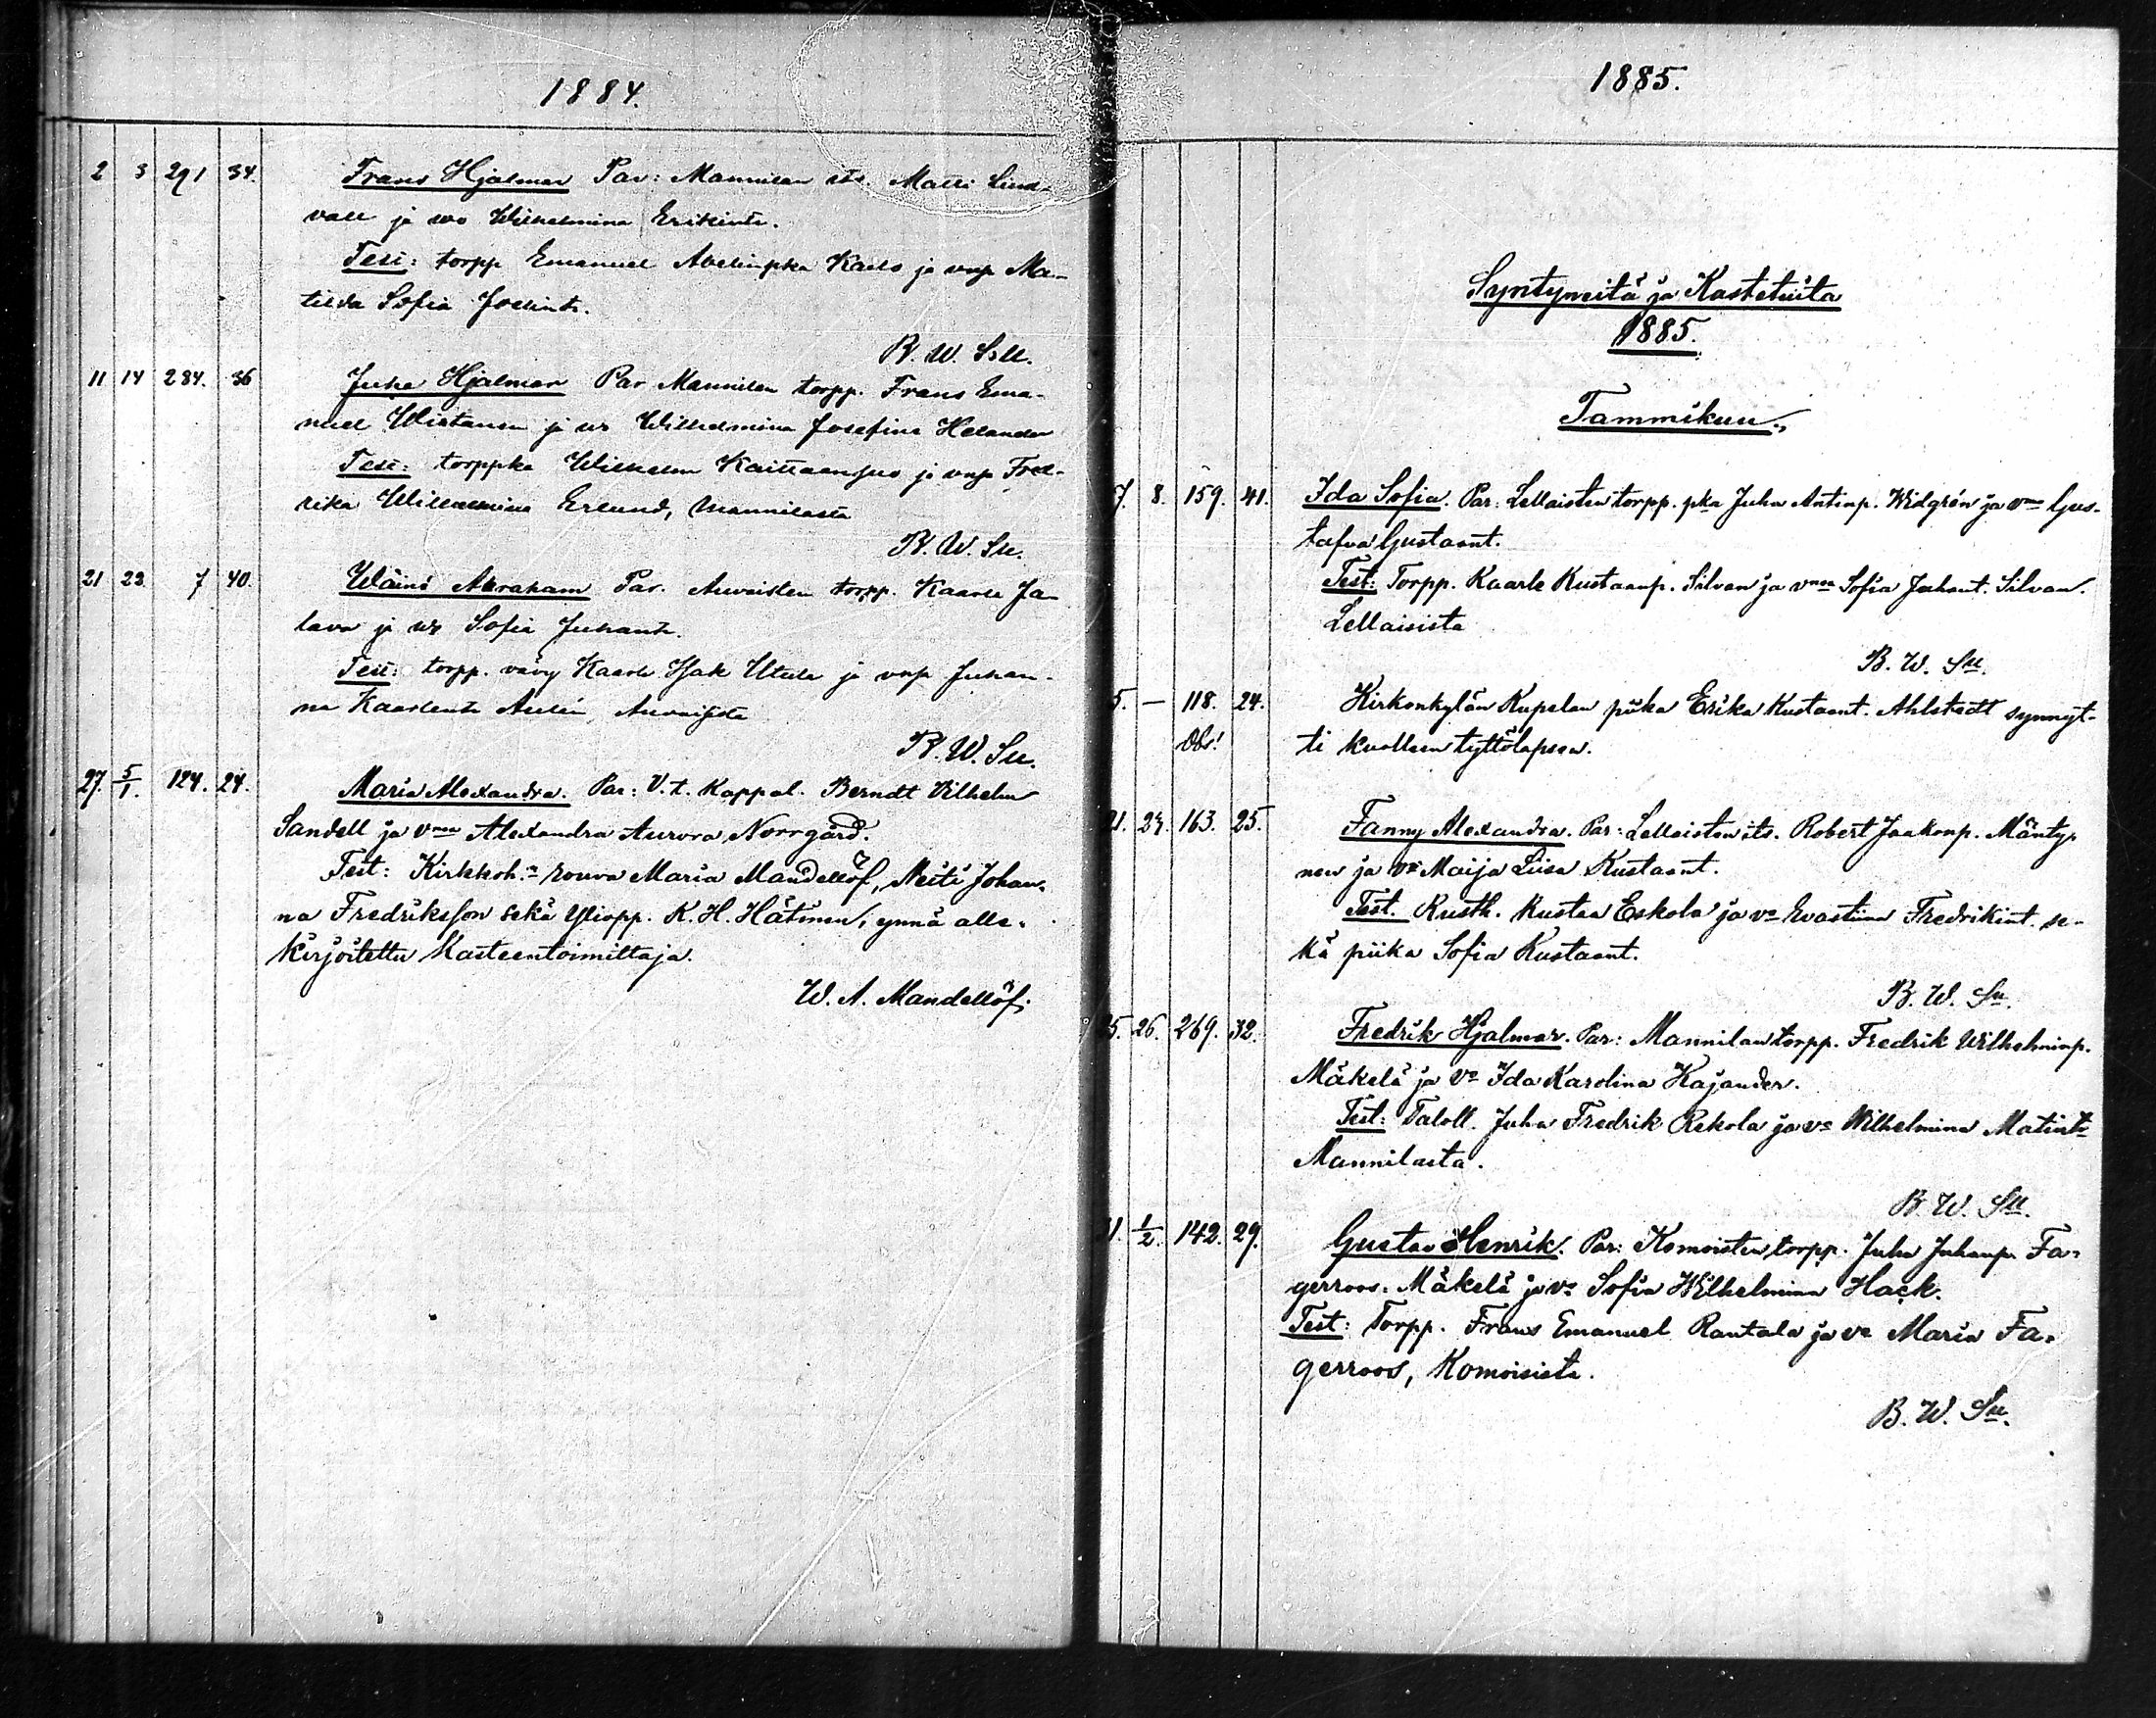 1884.
2 3 291 34. Frans Hjalmar Par: Mannilan its. Matti Lind-
vall ja wo Wilhelmina Erikint.
Test: torpp Emanuel Abelinpka Kailo ja vmp Ma-
tilda Sofia Joelint.
B. W. Sll.
11 14 284. 36 Juha Hjalmar Par Mannilan torpp. Frans Ema-
nuel Wirtanen ja wr Wilhelmina Josefina Helander
Test: torppka Wilhelm Kaittaansuo ja vmp Fred-
rika Wilhelmina Erlund, Mannilasta
B. W. Sll.
21 23 7 40. Wäinö Abraham Par. Auvaisten torpp. Kaarle Ja-
lava ja wr Sofia Juhant.
Test: torpp. vävy Kaarle Isak Utula ja vmp Juhan-
na Kaarlent. Aulén, Auvaisista
B. W. Sll.
27. 5/1. 124. 24. Maria Alexandra. Par: V.t. Kappal. Berndt Vilhelm
Sandell ja vmsa Alexandra Aurora Norrgård.
Test: Kirkkoh.n rouva Maria Mandellöf, Neiti Johan-
na Fredriksson sekä Yliopp. K. H. Hätinen, ynnä alle-
kirjoitettu Kasteentoimittaja.
W. A. Mandellöf.
1885.
Syntyneitä ja Kastetuita
1885.
Tammikuu.
7. 8. 159. 41. Ida Sofia. Par: Lellaisten torpp. pka Juha Antinp. Widgrén ja vmo Gus-
tafva Gustaant.
Test: Torpp. Kaarle Kustaanp. Silvan ja vmsa Sofia Juhant. Silvan.
Lellaisista
B. W. Sll.
5. — 118. 24. Kirkonkylän Kupelan piika Erika Kustaant. Ahlstedt synnyt-
Obs! ti kuolleen tyttölapsen.
21. 24. 163. 25. Fanny Alexandra. Par: Lellaisten its. Robert Jaakonp. Mänty-
nen ja vo Maija Liisa Kustaant.
Test. Rusth. Kustaa Eskola ja vo Evastiina Fredrikint. se-
kä piika Sofia Kustaant.
B. W. Sll.
25. 26. 269. 32. Fredrik Hjalmar. Par: Mannilan torpp. Fredrik Wilhelminp.
Mäkelä ja vo Ida Karolina Kajander.
Test: Taloll. Juha Fredrik Rekola ja vo Wilhelmina Matintr
Mannilasta.
B. W. Sll.
31. 1/2. 142. 29. Gustav Henrik. Par: Komoisten torpp. Juha Juhanp. Fa-
gerroos-Mäkelä ja vo Sofia Wilhelmina Hack.
Test: Torpp. Frans Emanuel Rantala ja vo Maria Fa-
gerroos, Komoisista.
B. W. Sll.